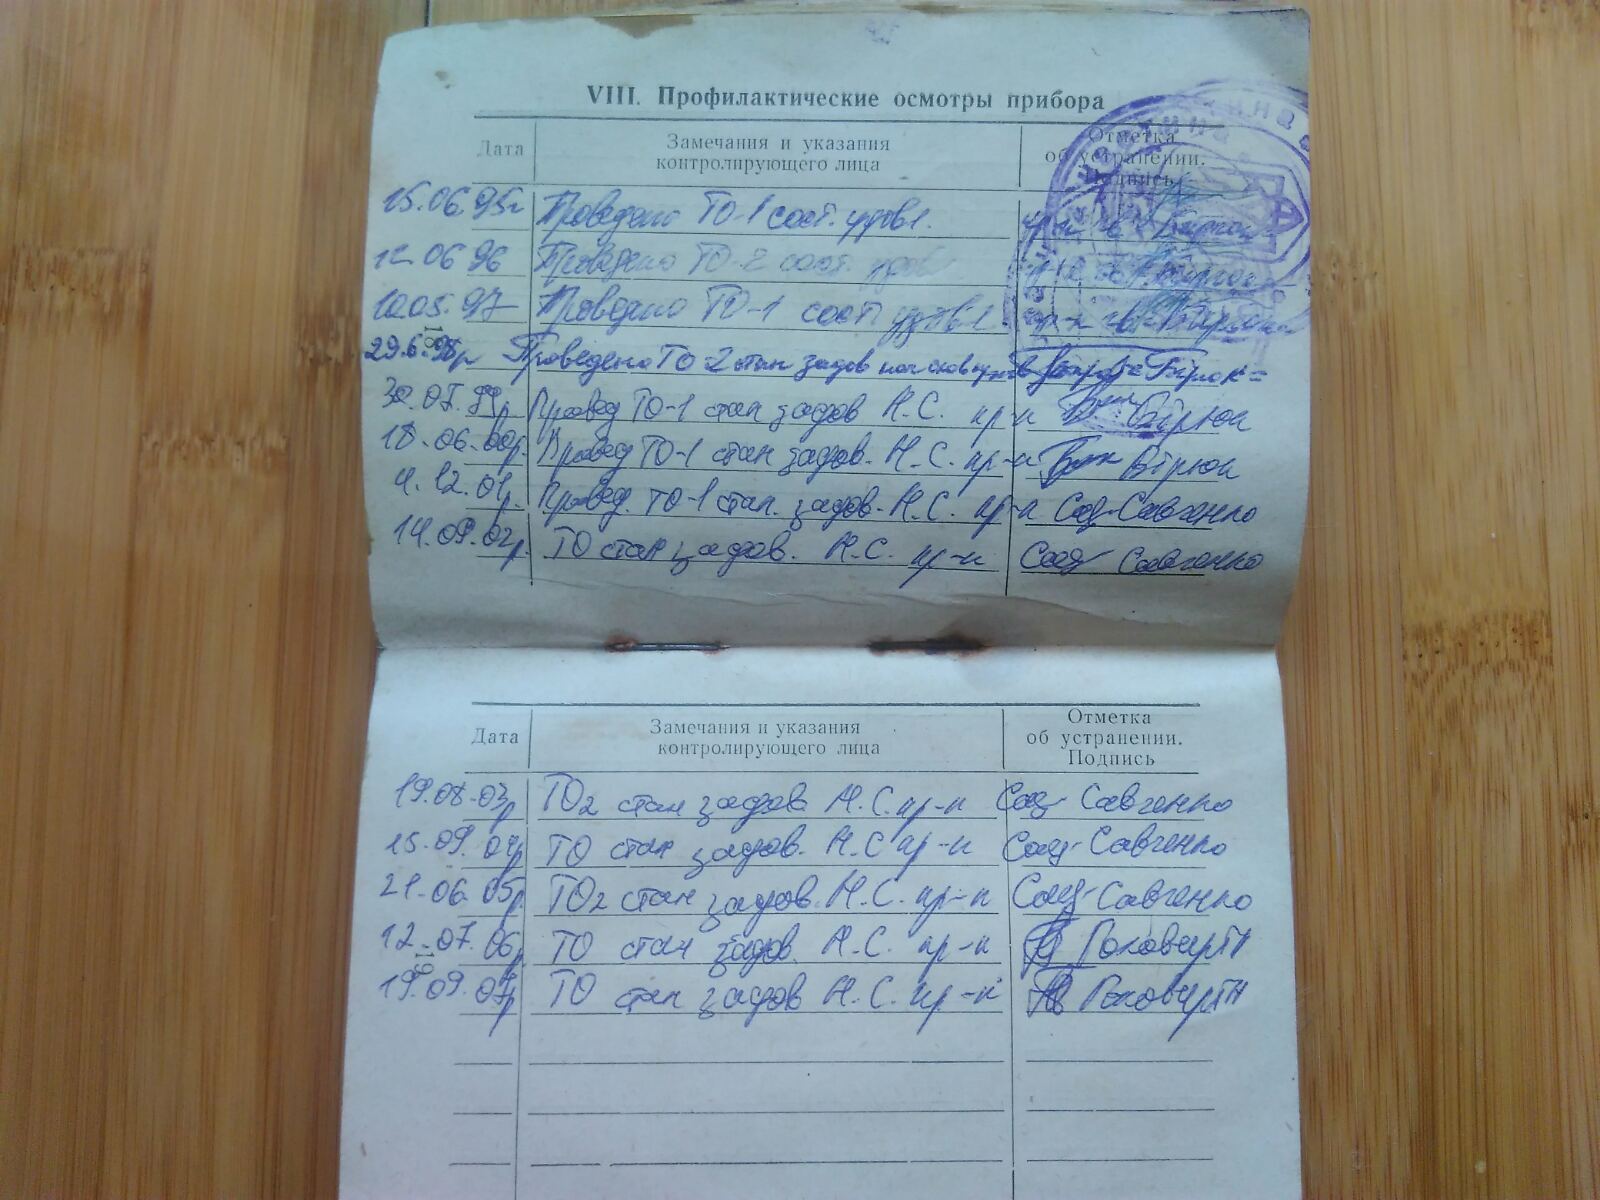 VIII. Профилактические осмотры прибора
Дата
Замечания и указания
контролирующего лица
Отметка
об устранении.
Подпись
15.06.95г Проведено ТО-1 сост. удовл.
12 06 96 Проведено ТО-2 сост. удов
10.05.97 Проведено ТО-1 сост удовл.
29.6.98р Проведено ТО 2 стан задов
30.07.99р. Провед ТО-1 стан задов Н.С. пр-к Бірюк
18.06.00р. Провед ТО-1 стан задов. Н.С. пр-к Бірюк
4.12.01р. Провед. ТО-1 стан. задов. Н.С. пр-к Савченко
14.09.02р. ТО стан задов. Н.С. пр-к Савченко
Дата
Замечания и указания
контролирующего лица
Отметка
об устранении.
Подпись
19.08.03р ТО2 стан задов Н.С. пр-к Савченко
15.09.04р ТО стан задов. Н.С пр-к Савченко
21.06.05р. ТО2 стан задов. Н.С. пр-к Савченко
12.07.06р. ТО стан задов. Н.С. пр-к
19.09.07р ТО стан задов Н.С. пр-к